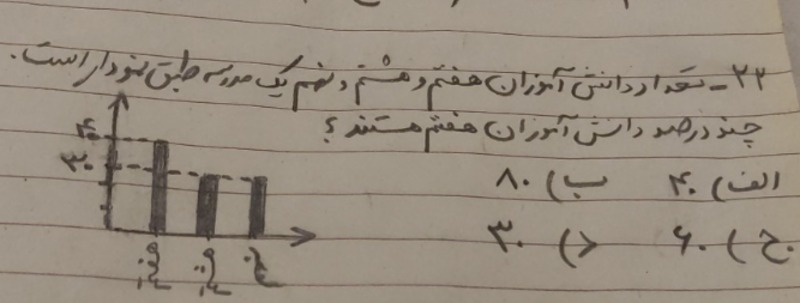 ۲۲ - تعداد دانش آموزان هفتم و هشتم و نهم یک مدرسه طبق نمودار است.
چند درصد دانش آموزان هفتم هستند ؟
الف) ۴۰ ب) ۸۰
ج) ۶۰ د) ۳۰
۴۰
۳۰